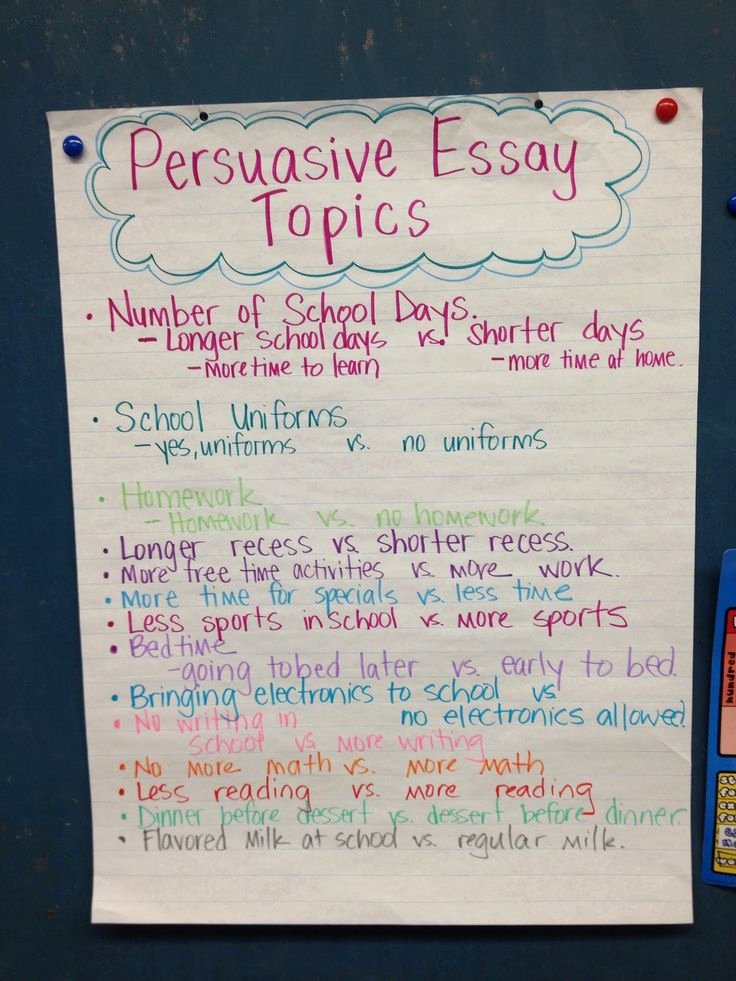 Persuasive Essay
Topics
• Number of School Days.
- Longer school days vs. shorter days
- more time to learn - more time at home.
• School Uniforms
- yes, uniforms vs. no uniforms
• Homework
- Homework vs. no homework.
• Longer recess vs. shorter recess.
• More free time activities vs. more work.
• More time for specials vs. less time
• Less sports in school vs. more sports
• Bedtime
- going to bed later vs. early to bed.
• Bringing electronics to school vs
no electronics allowed.
• No writing in
school vs more writing
• No more math vs. more math
• Less reading vs. more reading
• Dinner before dessert vs. dessert before dinner.
• Flavored Milk at school vs. regular milk.
hundred